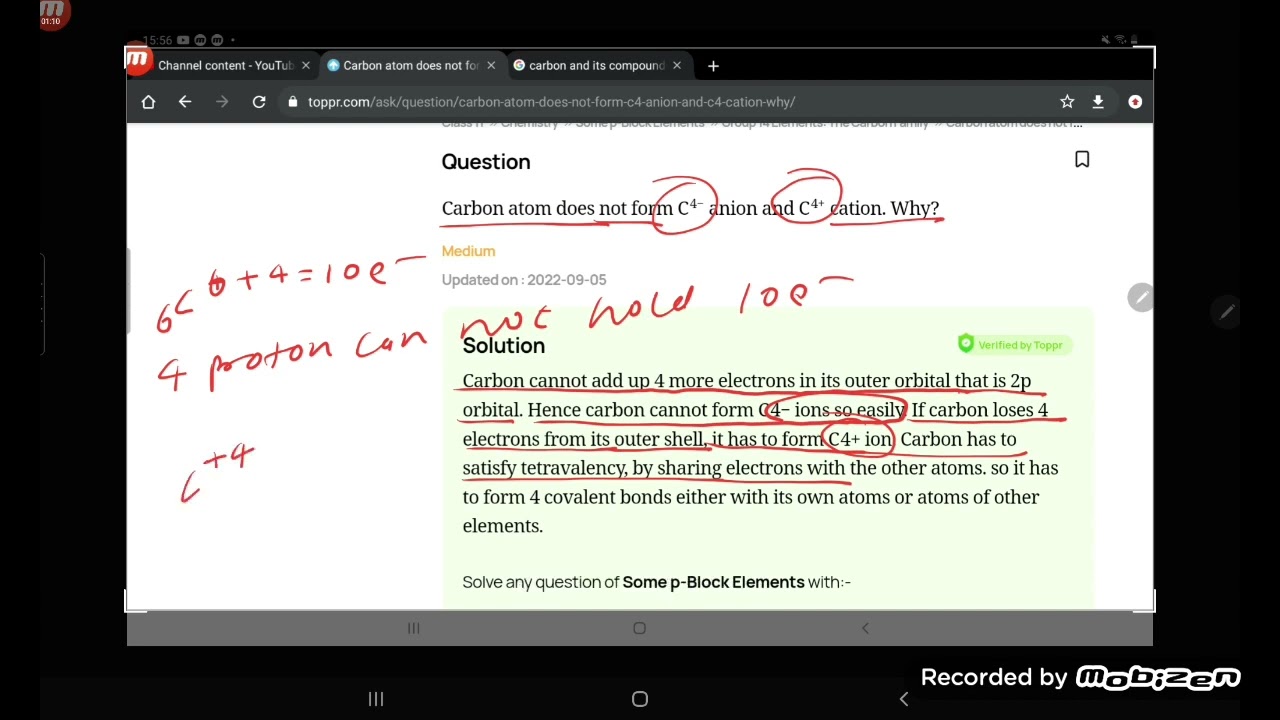 01:10
15:56
Channel content - YouTub
Carbon atom does not for
carbon and its compound
toppr.com/ask/question/carbon-atom-does-not-form-c4-anion-and-c4-cation-why/
Question
Carbon atom does not form C⁴⁻ anion and C⁴⁺ cation. Why?
Medium
Updated on : 2022-09-05
6C 6+4=10e⁻
4 proton can not hold 10e⁻
Solution
Verified by Toppr
Carbon cannot add up 4 more electrons in its outer orbital that is 2p
orbital. Hence carbon cannot form C4− ions so easily. If carbon loses 4
electrons from its outer shell, it has to form C4+ ion. Carbon has to
satisfy tetravalency, by sharing electrons with the other atoms. so it has
to form 4 covalent bonds either with its own atoms or atoms of other
elements.
C⁺⁴
Solve any question of Some p-Block Elements with:-
Recorded by mobizen